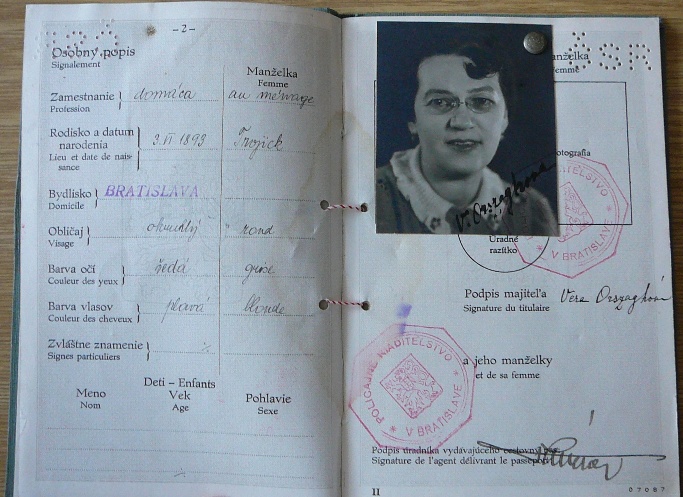 -2-
Osobný popis
Signalement
Manželka
Femme
Zamestnanie
Profession
domáca
au ménage
Rodisko a datum
narodenia
Lieu et date de nais-
sance
3.VI.1893
Bydlisko
Domicile
BRATISLAVA
Obličaj
Visage
okrúhlý
rond
Barva očí
Couleur des yeux
šedá
grise
Barva vlasov
Couleur des cheveux
plavá
blonde
Zvláštne znamenie
Signes particuliers
Deti – Enfants
Meno
Nom
Vek
Age
Pohlavie
Sexe
ČSR
anželka
Femme
otografia
V. Országhová
Úradné
razítko
POLICAJNÉ RIADITEĽSTVO
* V BRATISLAVE *
Podpis majiteľa
Signature du titulaire
Vera Országhová
a jeho manželky
et de sa femme
POLICAJNÉ RIADITEĽSTVO
* V BRATISLAVE *
Podpis úradníka vydávajúceho cestovný pas
Signature de l'agent délivrant le passeport
II
07087